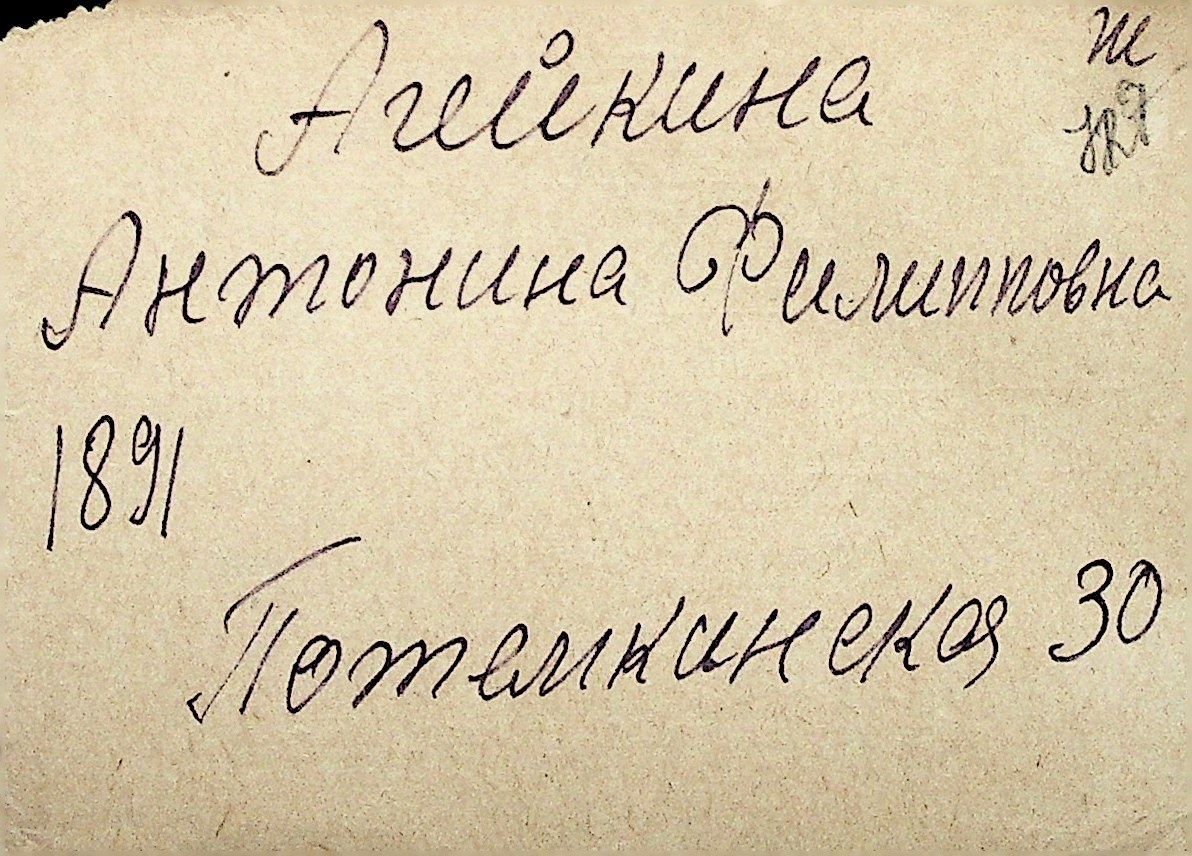 Агейкина
Антонина Филипповна
1891
Потемкинская 30